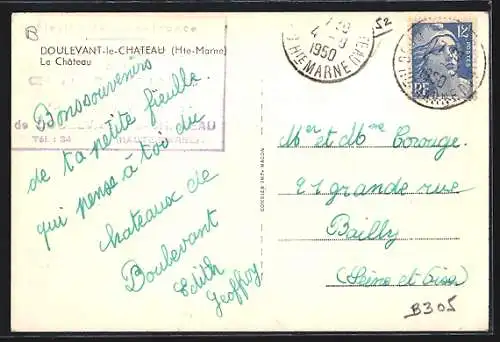 B
52
DOULEVANT-le-CHATEAU (Hte-Marne)
Le Château
4-8
1950
HTE MARNE
12F
POSTES
RF
1950
de
Tél : 34
Bons souvenirs
de ta petite fieulle
qui pense à toi du
chateaux de
Doulevant
Edith
Geoffroy
COMBIER IMP. MACON
Mer et Mme
21 grande rue
Bailly
(Seine et Oise)
B305